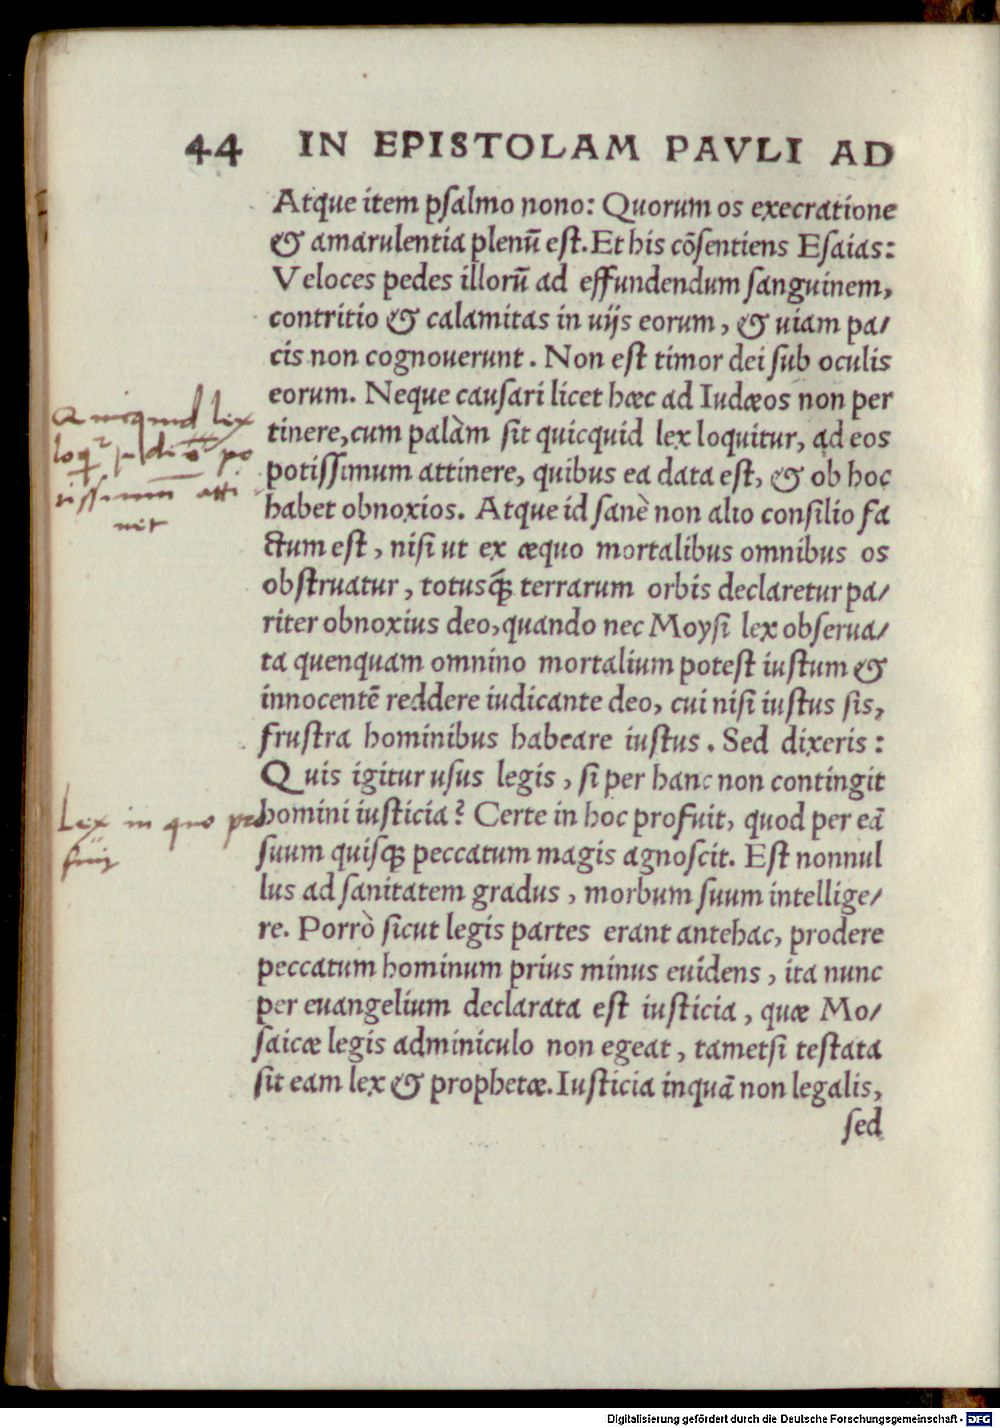 44 IN EPISTOLAM PAVLI AD
Atque item pſalmo nono: Quorum os execratione
& amarulentia plenũ eſt. Et his cõſentiens Eſaias:
Veloces pedes illorũ ad effundendum ſanguinem,
contritio & calamitas in uijs eorum, & uiam pa/
cis non cognouerunt. Non eſt timor dei ſub oculis
eorum. Neque cauſari licet hæc ad Iudæos non per
tinere, cum palàm ſit quicquid lex loquitur, ad eos
potiſſimum attinere, quibus ea data eſt, & ob hoc
habet obnoxios. Atque id ſanè non alio conſilio fa
ctum eſt, niſi ut ex æquo mortalibus omnibus os
obſtruatur, totusq́ꝫ terrarum orbis declaretur pa/
riter obnoxius deo, quando nec Moyſi lex obſerua/
ta quenquam omnino mortalium poteſt iuſtum &
innocentẽ reddere iudicante deo, cui niſi iuſtus ſis,
fruſtra hominibus habeare iuſtus. Sed dixeris:
Quis igitur uſus legis, ſi per hanc non contingit
homini iuſticia? Certe in hoc profuit, quod per eã
ſuum quiſqꝫ peccatum magis agnoſcit. Eſt nonnul
lus ad ſanitatem gradus, morbum ſuum intellige/
re. Porrò ſicut legis partes erant antehac, prodere
peccatum hominum prius minus euidens, ita nunc
per euangelium declarata eſt iuſticia, quæ Mo/
ſaicæ legis adminiculo non egeat, tametſi teſtata
ſit eam lex & prophetæ. Iuſticia inquã non legalis,
ſed
Quicquid lex
po
tissimum atti
net
Lex in quo pro
fuit
Digitalisierung gefördert durch die Deutsche Forschungsgemeinschaft - DFG